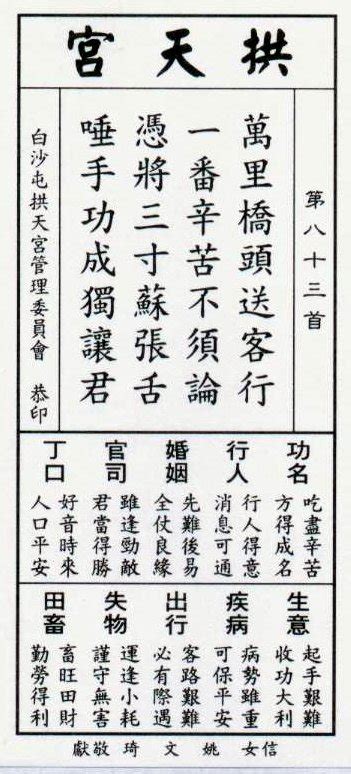 拱天宮
第八十三首
萬里橋頭送客行
一番辛苦不須論
憑將三寸蘇張舌
唾手功成獨讓君
白沙屯拱天宮管理委員會 恭印
功名
吃盡辛苦
方得成名
行人
行人得意
消息可通
婚姻
先難後易
全仗良緣
官司
雖逢勁敵
君當得勝
丁口
好音時來
人口平安
生意
起手艱難
收功大利
疾病
病勢雖重
可保平安
出行
客路艱難
必有際遇
失物
運逢小耗
謹守無害
田畜
畜旺田財
勤勞得利
信女 姚文琦 敬獻